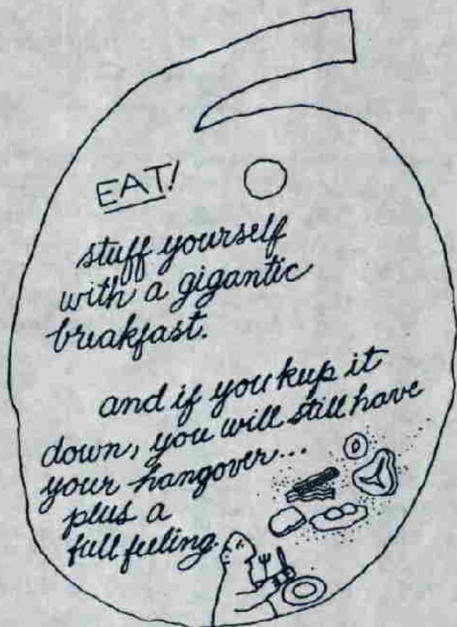 EAT!
stuff yourself
with a gigantic
breakfast.
and if you keep it
down, you will still have
your hangover...
plus a
full feeling.